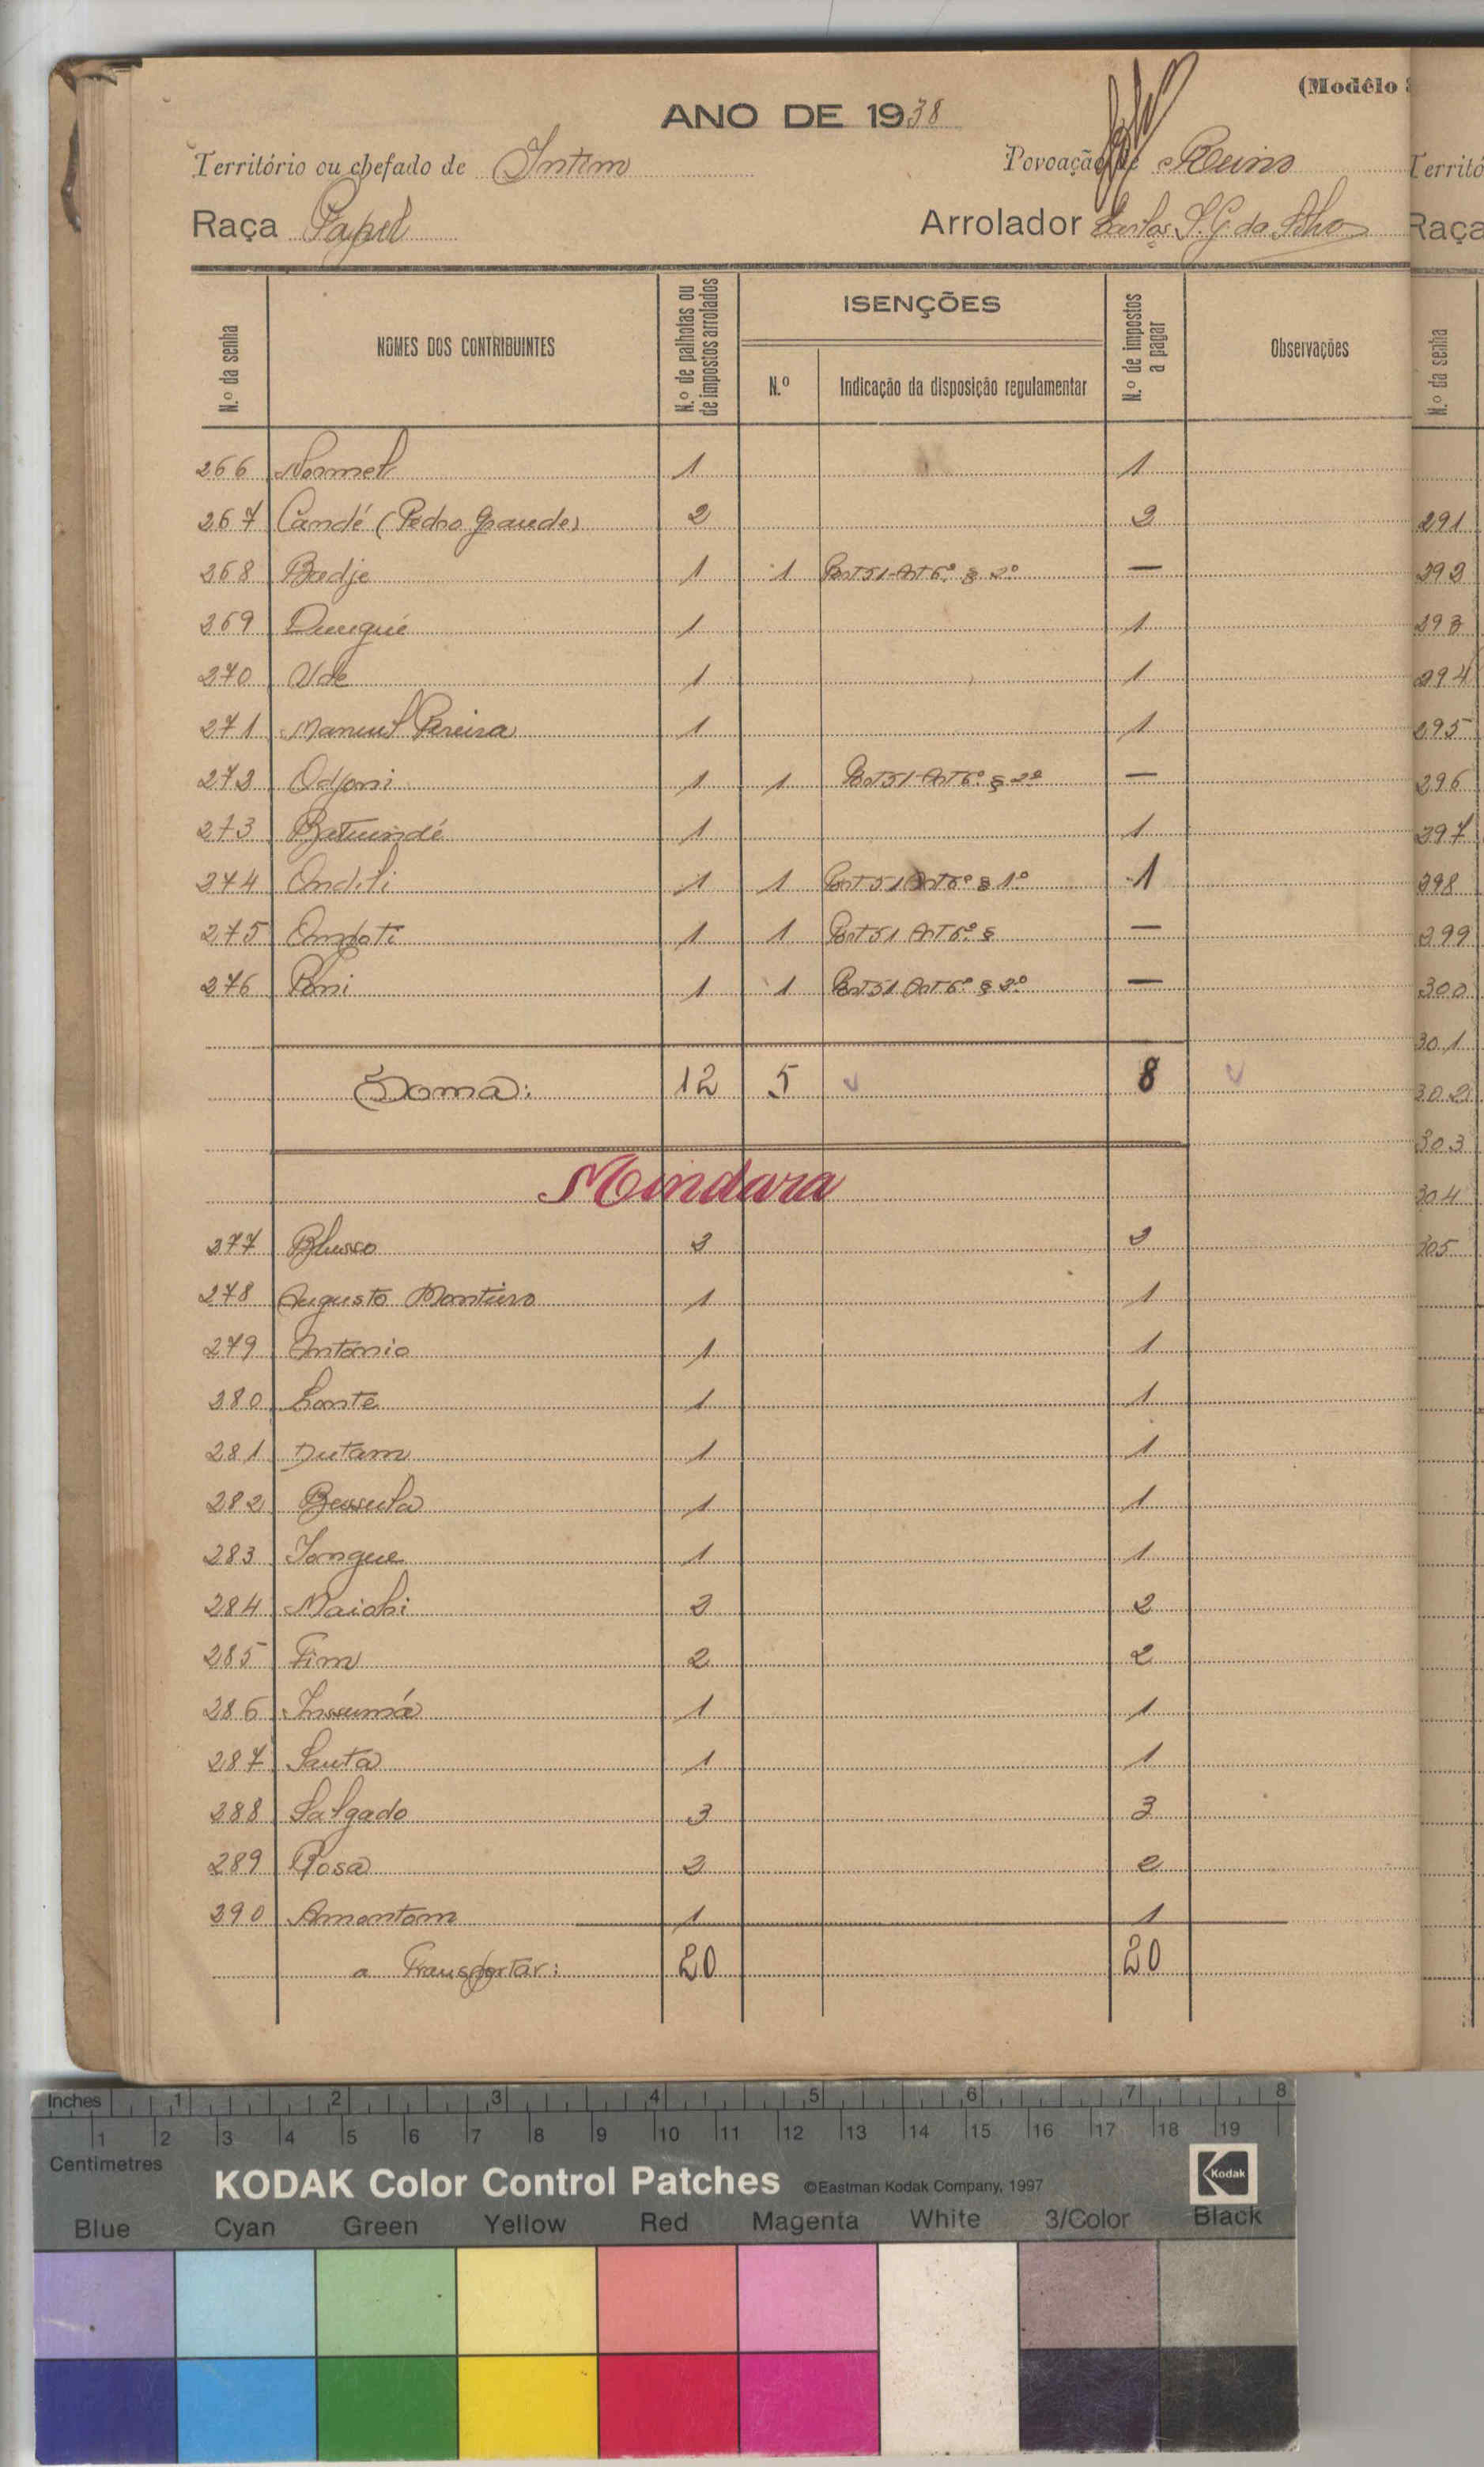 (Modêlo
ANO DE 1938
Território ou chefado de Intim Povoação de Reino
Raça Papel Arrolador S. G. da
N.º da senha
NOMES DOS CONTRIBUINTES
N.º de palhotas ou de impostos arrolados
ISENÇÕES
N.º
Indicação da disposição regulamentar
N.º de impostos a pagar
Observações
266 Normet 1 1
267 Candé (Pedro Grande) 2 2
268 Badje 1 1 Port 51 Art 6º § 2º —
269 1 1
270 Ude 1 1
271 Manuel Pereira 1 1
272 Odjoni 1 1 Port 51 Art 6º § 2º —
273 Batuindé 1 1
274 Ondili 1 1 Port 51 Art 6º § 1º 1
275 1 1 Port 51 Art 6º § —
276 Poni 1 1 Port 51 Art 6º § 2º —
Soma: 12 5 8
Mindara
277 2 2
278 Augusto Monteiro 1 1
279 Antonio 1 1
280 1 1
281 Dutam 1 1
282 Bessula 1 1
283 1 1
284 2 2
285 Fim 2 2
286 Insumá 1 1
287 Sauta 1 1
288 Salgado 3 3
289 Rosa 2 2
290 Amontom 1 1
a Transportar: 20 20
Territó
Raça
N.º da senha
291
292
293
294
295
296
297
298
299
300
301
302
303
304
305
Inches 1 2 3 4 5 6 7 8
1 2 3 4 5 6 7 8 9 10 11 12 13 14 15 16 17 18 19
Centimetres
KODAK Color Control Patches ©Eastman Kodak Company, 1997 Kodak
Blue Cyan Green Yellow Red Magenta White 3/Color Black